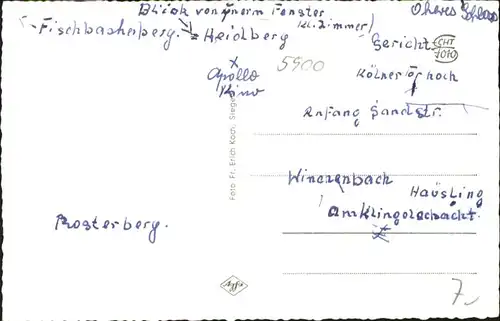 Blick von
Fenster
Oberes Schloss
Fischbacherberg. = Heidberg
(kl. Zimmer)
Gericht
x
Apollo
Kino
5900
Kölner
noch
Anfang Sandstr.
Foto Fr. Erich Koch, Siegen
Winchenbach
Häusling
Rosterberg.
Agfa
7.-